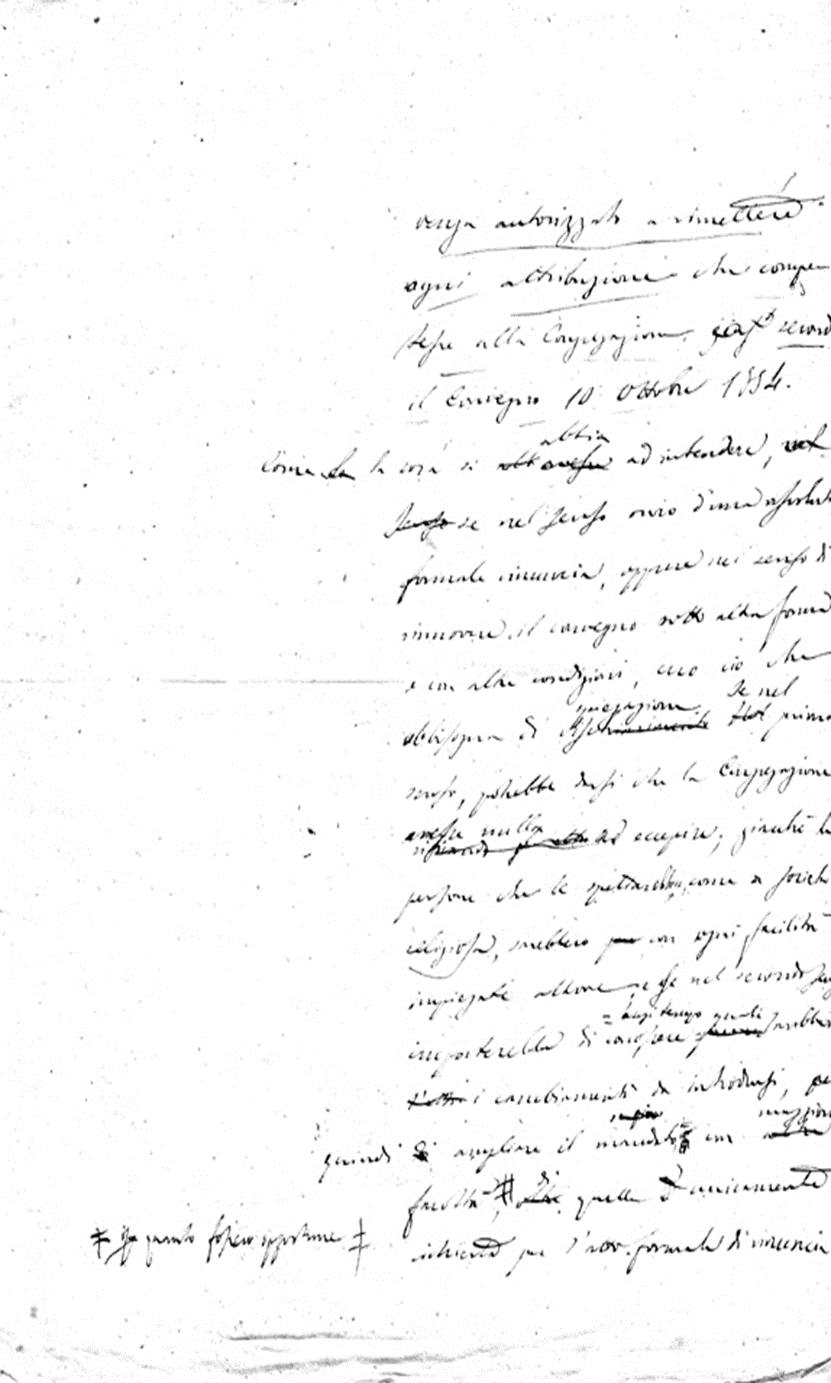 venga autorizzato a rimettere
ogni attribuzione che compe
tesse alla Congregazione secon
il Convegno 10 Ottobre 1854.
abbia
Come la cosa si ad intendere,
se nel senso ovvio d'una assolut
formale rinuncia, oppure nel senso di
rinnovare il convegno sotto altra forma
o con altre condizioni, ecco ciò che
spiegazione. Se nel
abbisogna di primo
senso, potrebbe darsi che la Congregazione
avesse nulla
ad eccepire; giacchè le
persone che le spetterebbero, come a società
religiosa, sarebbero con ogni facilità
impiegate altrove; e se nel secondo sen
= a suo tempo quali
importerebbe di conoscere sarebber
i cambiamenti da introdursi, per
maggiori
quindi ampliare il mandato con
di
facoltà, # quelle unicamente
richieste per l'atto formale di rinuncia
‡ in quanto fossero opportune ‡